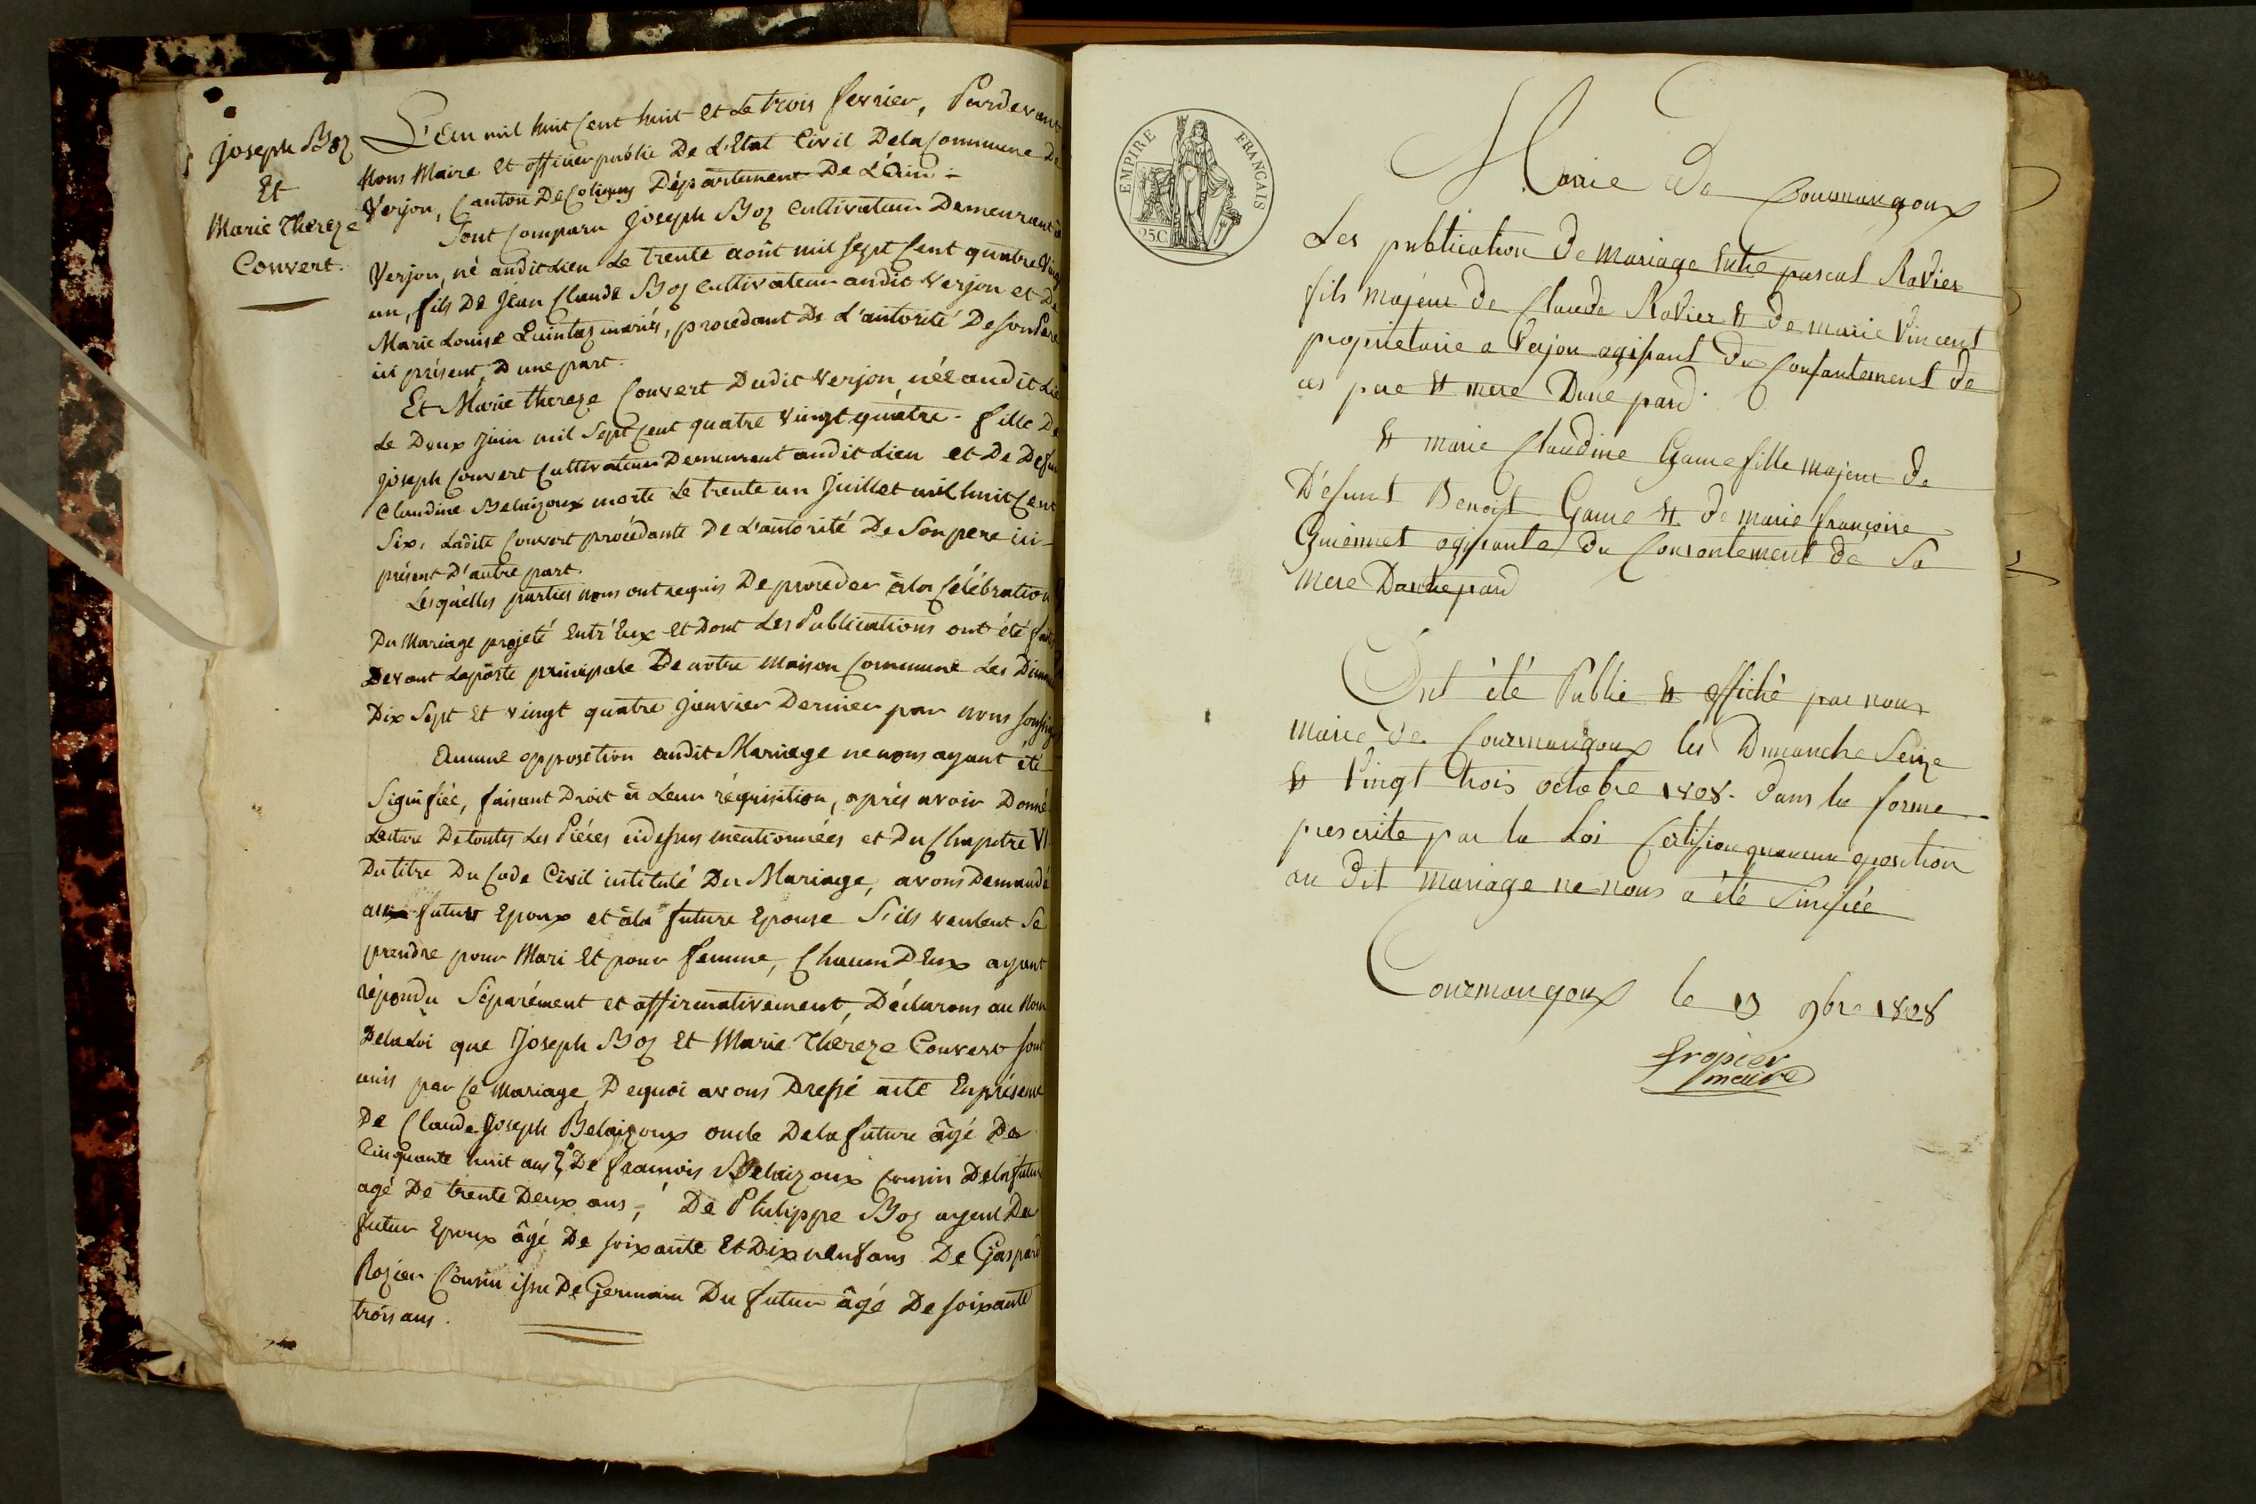 Joseph Boz
Et
Marie Thereze
Convert.
L'An mil huit Cent huit et Le trois fevrier, Pardevant
Nous Maire et officier public De L'Etat Civil Dela Commune De
Verjon, Canton De Coligny Département De L'Ain -
Sont Comparu Joseph Boz Cultivateur Demeurant à
Verjon, né auditLieu Le trente août mil sept Cent quatre Vingt
un, fils De Jean Claude Boz Cultivateur audit Verjon et De
Marie Louise Quintaz mariés, procedant De L'autorité De son Pere
ici présent, D'une part.
Et Marie thereze Convert Dudit Verjon née audit Lie
Le Deux Juin mil Sept Cent quatre Vingt quatre - fille De
Joseph Convert Cultivateur Demeurant audit Lieu et De Defun
Claudine Beluizoux morte Le trente un Juillet mil huit Cent
Six, Ladite Convert procédante De L'autorité De Son pere ici -
présent D'autre part.
Lesquelles parties nous ont requis De proceder à la Célébration
Du Mariage projeté Entr'Eux et Dont Les Publications ont été fait
Devant Laporte principale De notre maison Commune Les Diman
Dix Sept Et vingt quatre Jienvier Dernier par nous soussig
Aucune opposition audit Mariage ne nous ayant été
Signifiée, faisant Droit à Leur réquisition, après avoir Donné
Lecture De toutes Les Piéces cidessus mentionnées et Du Chapitre VI
Du titre Du Code Civil intitulé Du Mariage, avons Demandé
au futur Epoux et àla future Epouse S'ils veulent Se
prendre pour Mari Et pour femme, Chacun D'Eux ayant
répondu Séparément et affirmativement, Déclarons au Nom
DelaLoi que Joseph Boz Et Marie Théreze Convert sont
unis par Ce mariage, De quoi avons Dressé acte En présence
De Claude Joseph Beluizoux oncle Dela future âgé De
Cinquante huit ans De francois Beluizoux Cousin Dela futur
agé De trente Deux ans, De Philippe Boz ayeul Du
futur Epoux âgé De soixante Et Dix neuf ans De Gaspard
Rozier Cousin issu De Germain Du futur âgé De soixante
trois ans.
EMPIRE FRANÇAIS
25C
Marie de Courmangoux
Les publication de mariage Entre pascal Ravier
fils majeur de Claude Ravier et de marie Vincent
proprietaire a Verjon agissant du Consantement de
ces pere et mere Dune pard.
et marie Claudine Game fille majeur de
Défunt Benoit Game et de marie françoise
Guiennet agissante du Consontement de Sa
mere Dautre pard
Ont été Publié et affiché par nous
maire de Courmangoux les Dimanche Seize
et Vingt trois octobre 1808. dans la forme
prescrite par la Loi Certifion quaucun oposition
au dit mariage ne nous a été Sinifiée
Courmangoux le 13 9bre 1808
fropier
maire